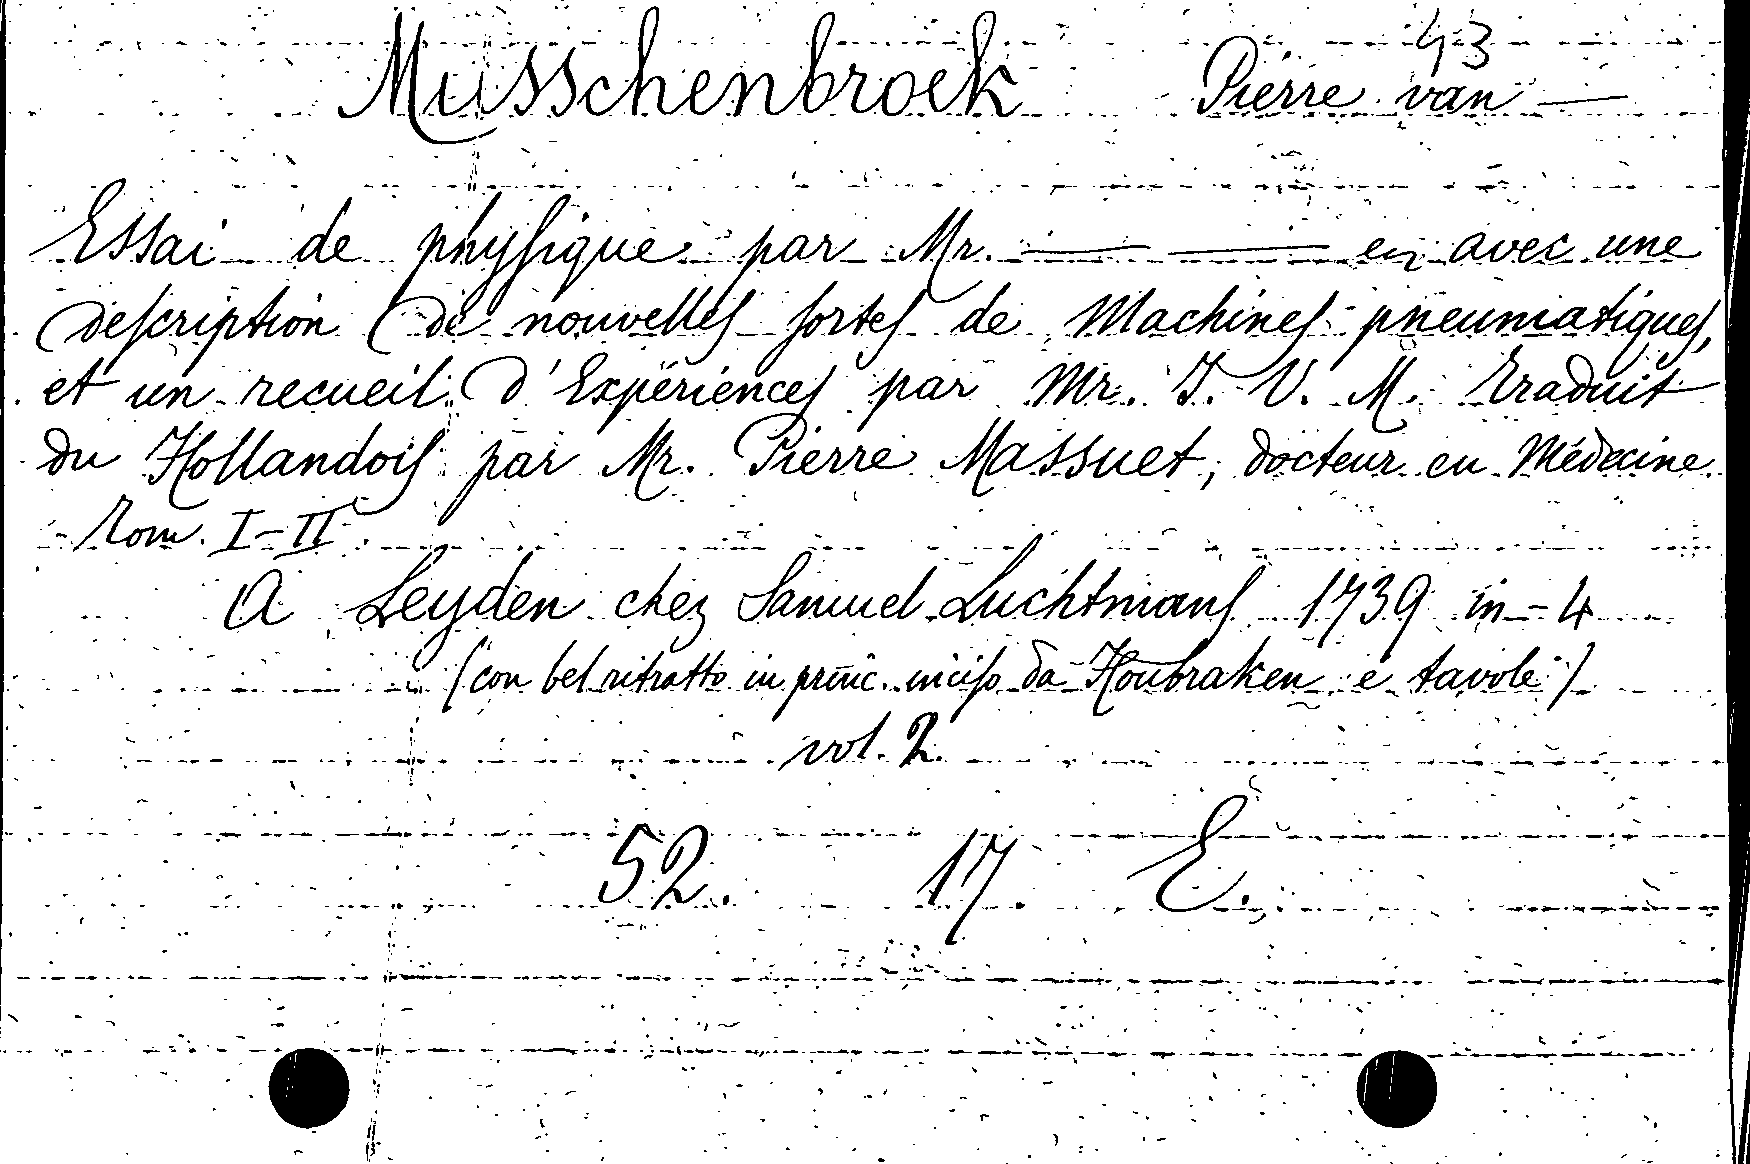 43
Musschenbroek Pierre van —
Essai de phyſique par Mr. — — en avec une
deſcription de nouvelleſ ſorteſ de Machineſ pneumatiqueſ,
et un recueil d'Expérienceſ par Mr. J. V. M. Traduit
du Hollandoiſ par Mr. Pierre Massuet, docteur en Médecine
Tom. I-II.
A Leyden chez Samuel Luchtmanſ 1739 in-4
(con bel ritratto in princ. inciſo da Houbraken e tavole)
vol. 2.
52. 17. E.